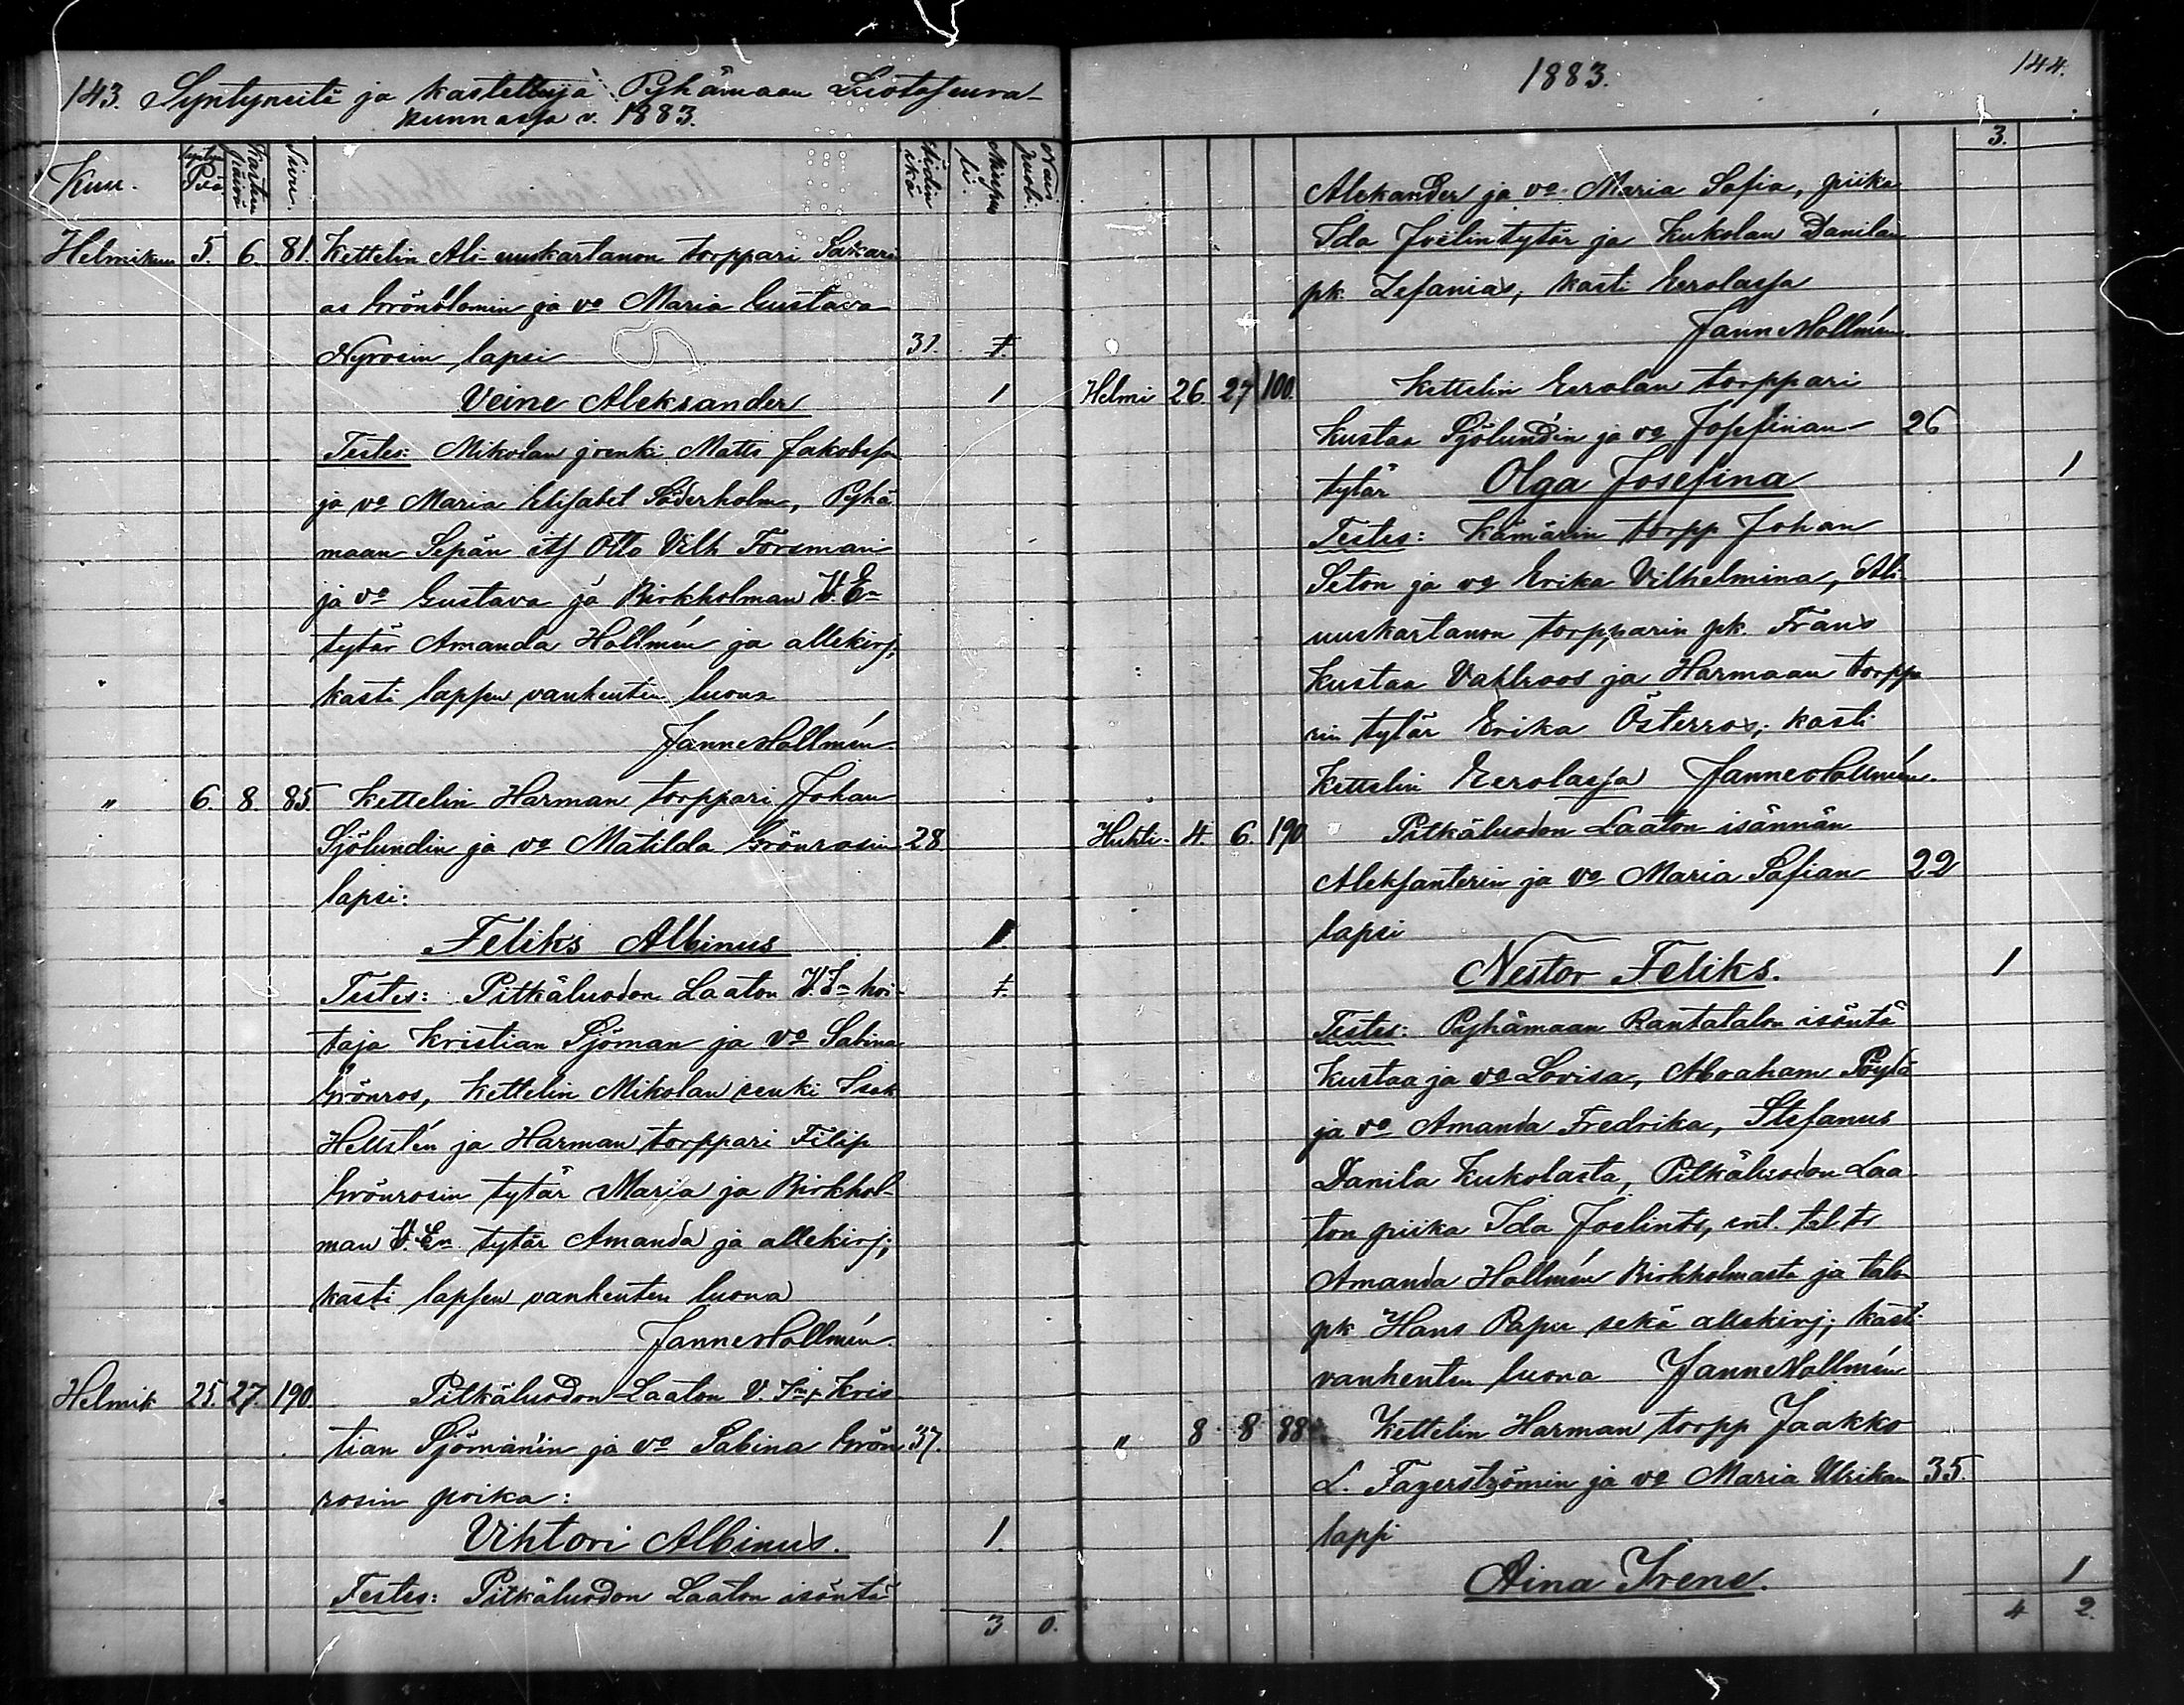 143. Syntyneitä ja kastettuja Pyhämaan Luotoseura-
kunnassa v. 1883.
Kuu. Syntym Pvä Kasten päivä Sivu. Äidin ikä Miespuoli. Naispuoli.
Helmikuu 5. 6. 81. Kettelin Ali-uuskartanon torppari Sakari
as Grönblomin ja vo Maria Gustava
Nyrosin lapsi 31. †
Veine Aleksander 1
Testes: Mikolan renki Matts Jakobsson
ja vo Maria Elisabet Söderholm, Pyhä
maan Sepän its Otto Vilh Forsman
ja vo Gustava ja Birkholman V. En
tytär Amanda Hollmén ja allekirj,
kasti lapsen vanhenten luona
Janne Hollmén.
" 6. 8. 85. Kettelin Harman torppari Johan
Sjölundin ja vo Matilda Grönrosin 28
lapsi:
Feliks Albinus 1
Testes: Pitkäluodon Laaton V. In hoi- †.
taja Kristian Sjöman ja vo Sabina
Grönros, Kettelin Mikolan renki Isak
Hellstén ja Harman torppari Filip
Grönrosin tytär Maria ja Birkhol-
man V. En tytär Amanda ja allekirj;
kasti lapsen vanhenten luona
Janne Hollmén.
Helmik 25. 27. 190. Pitkäluodon Laaton V. Kris
tian Sjöman'in ja vo Sabina Grön 37.
rosin poika:
Vihtori Albinus. 1.
Testes: Pitkäluodon Laaton isäntä
3 0.
1883. 144.
3.
Aleksander ja vo Maria Sofia, piika
Ida Joëlintytär ja Kukolan Danilan
pk. Zefanias; kasti Eerolassa
Janne Hollmén.
Helmi 26. 27 100. Kettelin Eerolan torppari
Kustaa Sjölundin ja vo Josefinan 26
tytär Olga Josefina 1
Testes: Kämärin torpp Johan
Seton ja vo Erika Vilhelmina, Ali
uuskartanon torpparin pk. Frans
Kustaa Vahlroos ja Harmaan torppa
rin tytär Erika Österros; kasti
Kettelin Eerolassa Janne Hollmén.
Huhti- 4. 6. 190 Pitkäluodon Laaton isännän
Aleksanterin ja vo Maria Sofian 22
lapsi
Nestor Feliks. 1
Testes: Pyhämaan Rantatalon isäntä
Kustaa ja vo Lovisa, Abraham Pöytä
ja vo Amanda Fredrika, Stefanus
Danila Kukolasta, Pitkäluodon Laa
ton piika Ida Joelints, ent. tal. ts
Amanda Hollmén Birkholmasta ja talo
pk Hans Papu sekä allekirj; kasti
vanhenten luona Janne Hollmén
" 8 8 88 Kettelin Harman torpp Jaakko
L. Fagerströmin ja vo Maria Ulrikan 35.
lapsi
Aina Irene. 1
4 2.